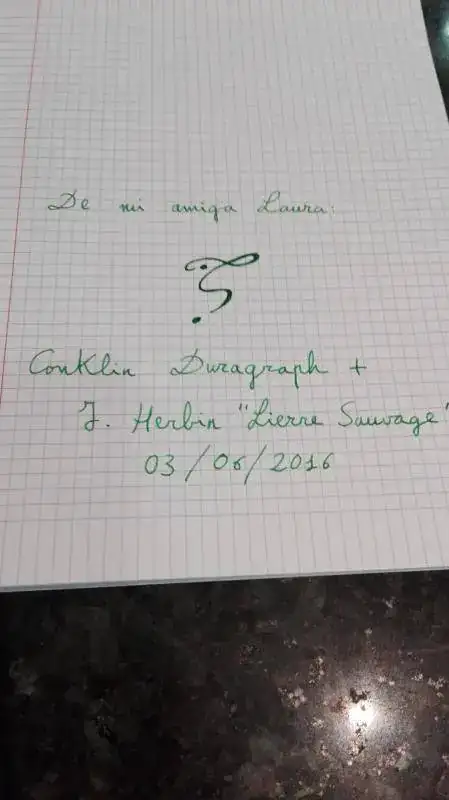 De mi amiga Laura:
Conklin Duragraph +
J. Herbin "Lierre Sauvage"
03/06/2016